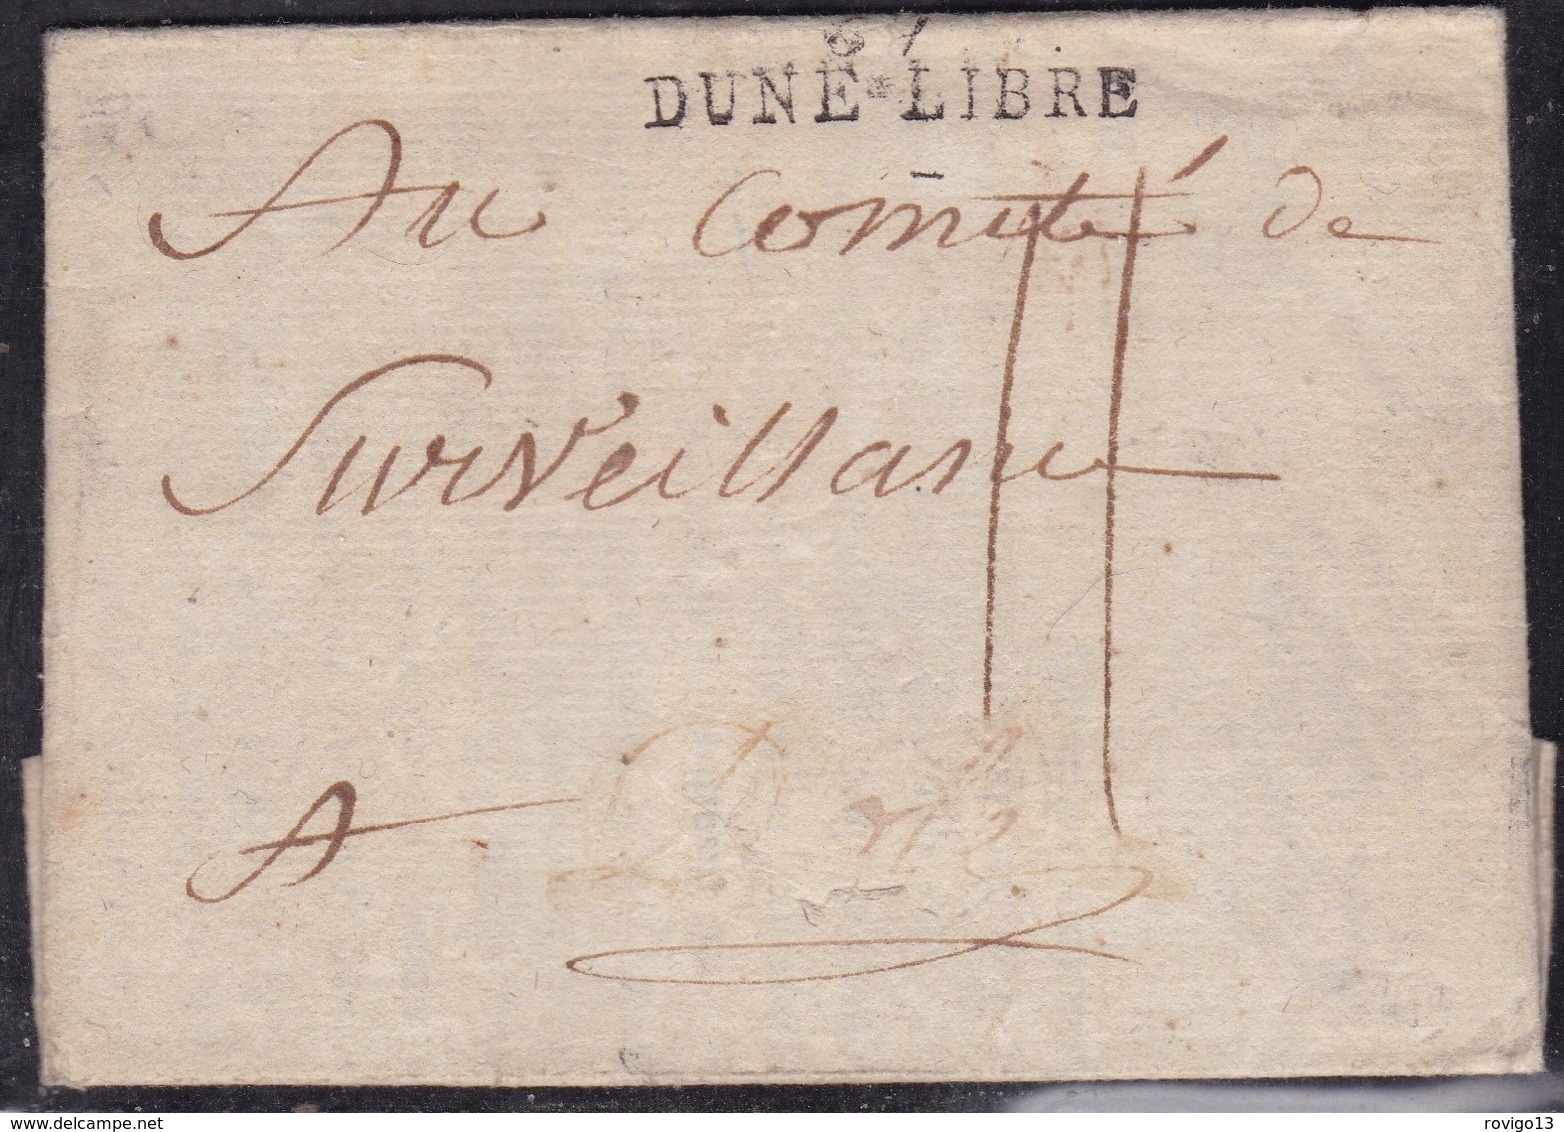 DUNE-LIBRE
Au Comité de
Surveillance
A
delcampe.net
rovigo13